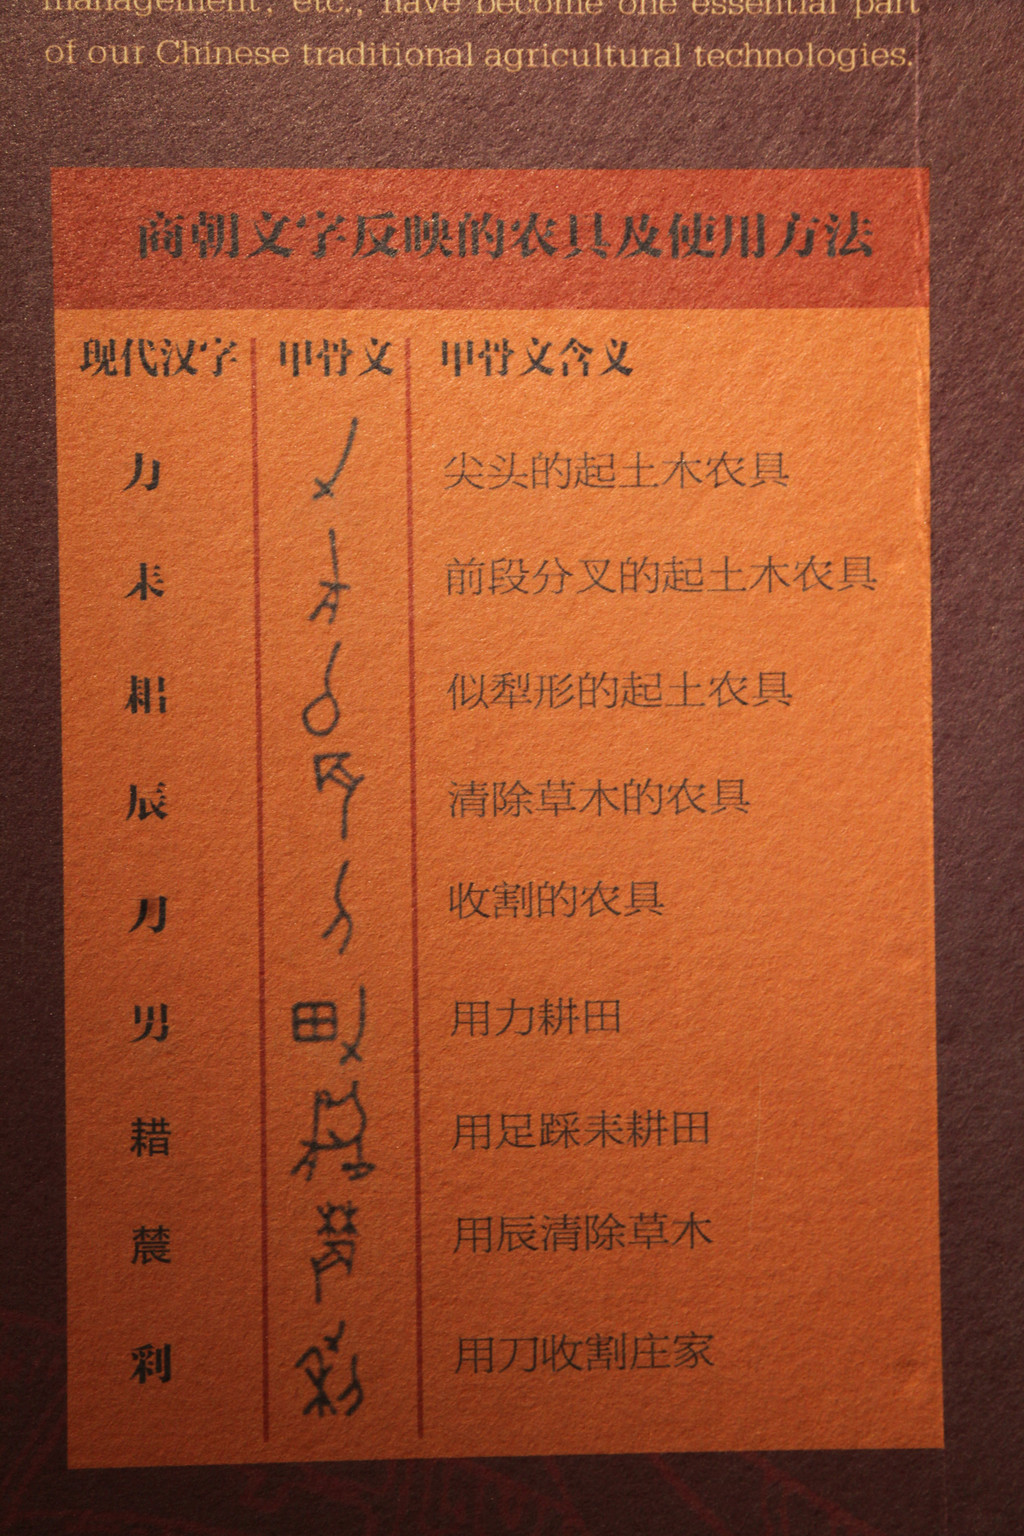 management, etc., have become one essential part
of our Chinese traditional agricultural technologies.
商朝文字反映的农具及使用方法
现代汉字 甲骨文 甲骨文含义
力 尖头的起土木农具
耒 前段分叉的起土木农具
耜 似犁形的起土农具
辰 清除草木的农具
刀 收割的农具
男 用力耕田
耤 用足踩耒耕田
用辰清除草木
用刀收割庄家